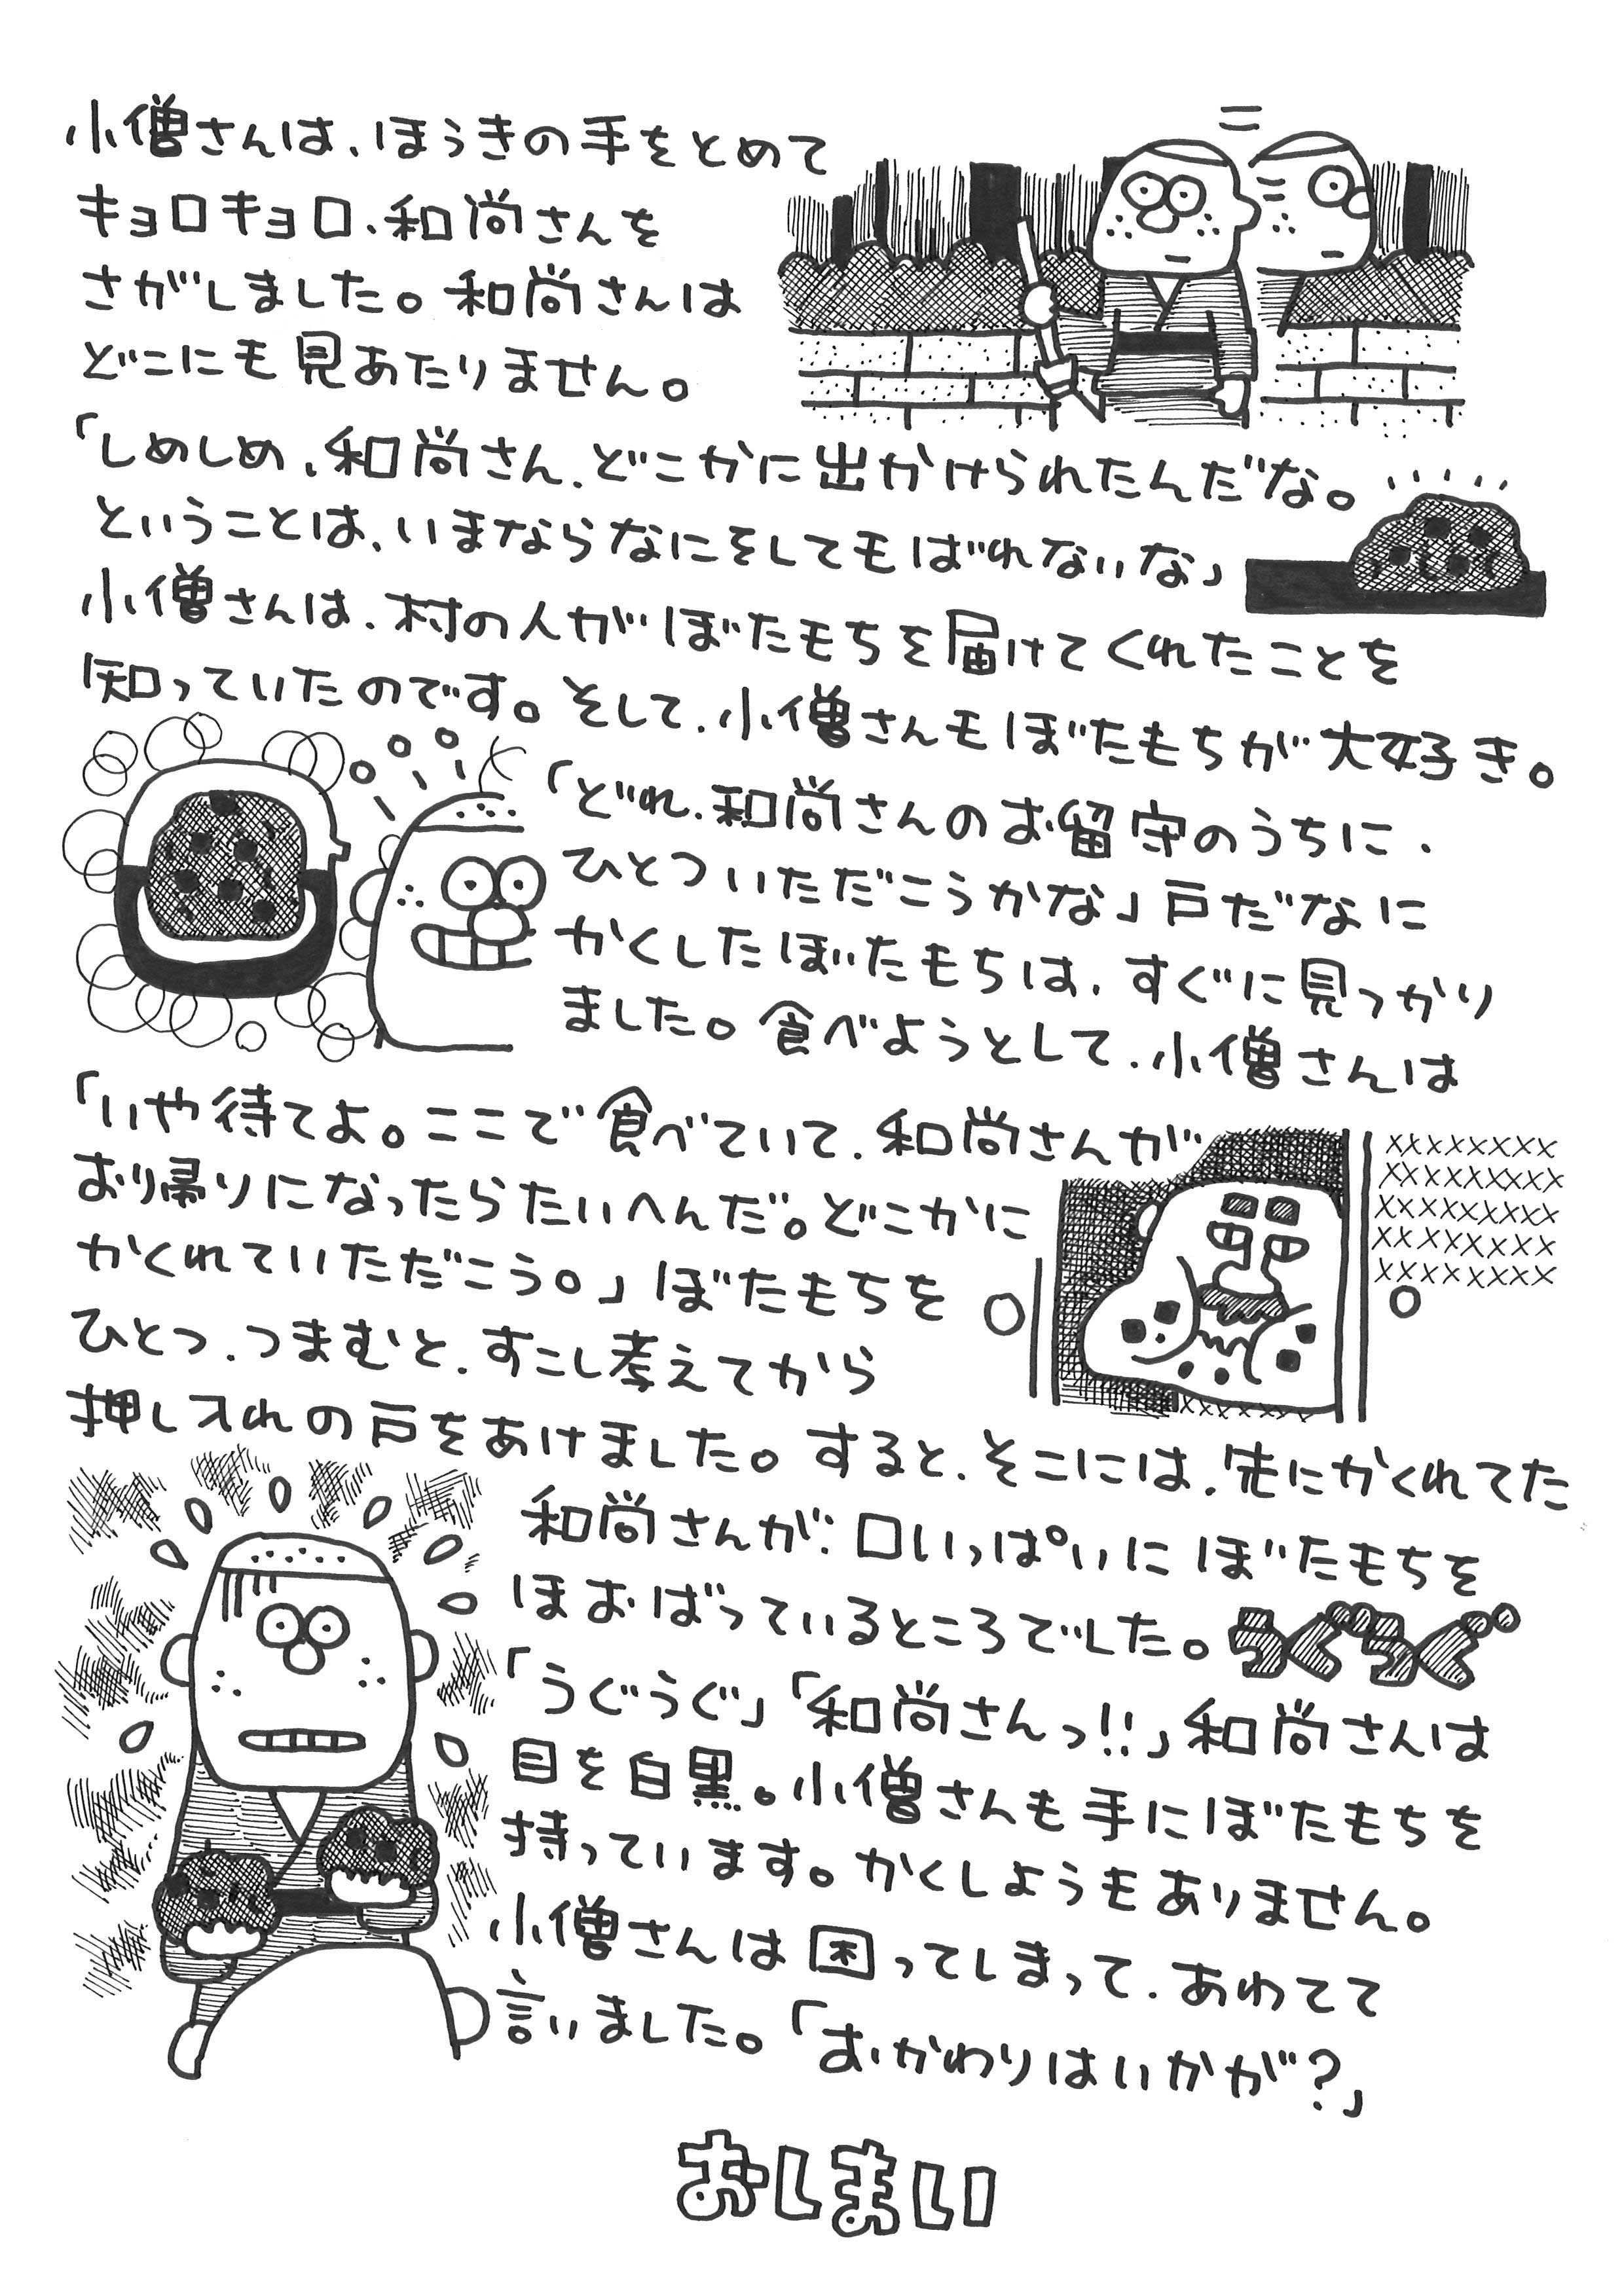 小僧さんは、ほうきの手をとめて
キョロキョロ、和尚さんを
さがしました。和尚さんは
どこにも見あたりません。
「しめしめ、和尚さん、どこかに出かけられたんだな。
ということは、いまならなにをしてもばれないな」
小僧さんは、村の人がぼたもちを届けてくれたことを
知っていたのです。そして、小僧さんもぼたもちが大好き。
「どれ、和尚さんのお留守のうちに、
ひとついただこうかな」戸だなに
かくしたぼたもちは、すぐに見つかり
ました。食べようとして、小僧さんは
「いや待てよ。ここで食べていて、和尚さんが
お帰りになったらたいへんだ。どこかに
かくれていただこう。」ぼたもちを
ひとつ、つまむと、すこし考えてから
押し入れの戸をあけました。すると、そこには、先にかくれてた
和尚さんが、口いっぱいにぼたもちを
ほおばっているところでした。
うぐうぐ
「うぐうぐ」「和尚さんっ!!」和尚さんは
目を白黒。小僧さんも手にぼたもちを
持っています。かくしようもありません。
小僧さんは困ってしまって、あわてて
言いました。「おかわりはいかが?」
おしまい